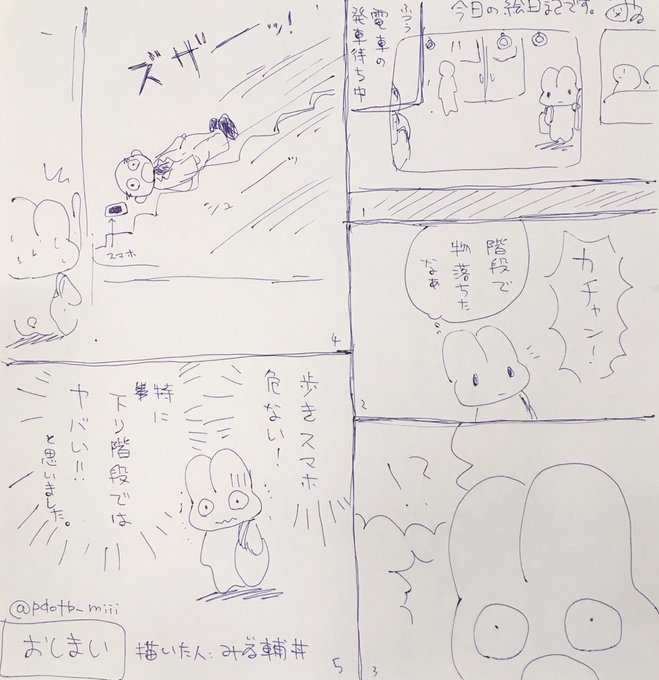 今日の絵日記です。
ふつう
電車の
発車待ち中
1
カチャン!
階段で
物落ちた
なぁ
2
!?
3
ズザーーッ!
スマホ
4
歩きスマホ
危ない!
特に
下り階段では
ヤバい!!
と思いました。
@pdotp_miii
おしまい
描いた人:みる輔井
5